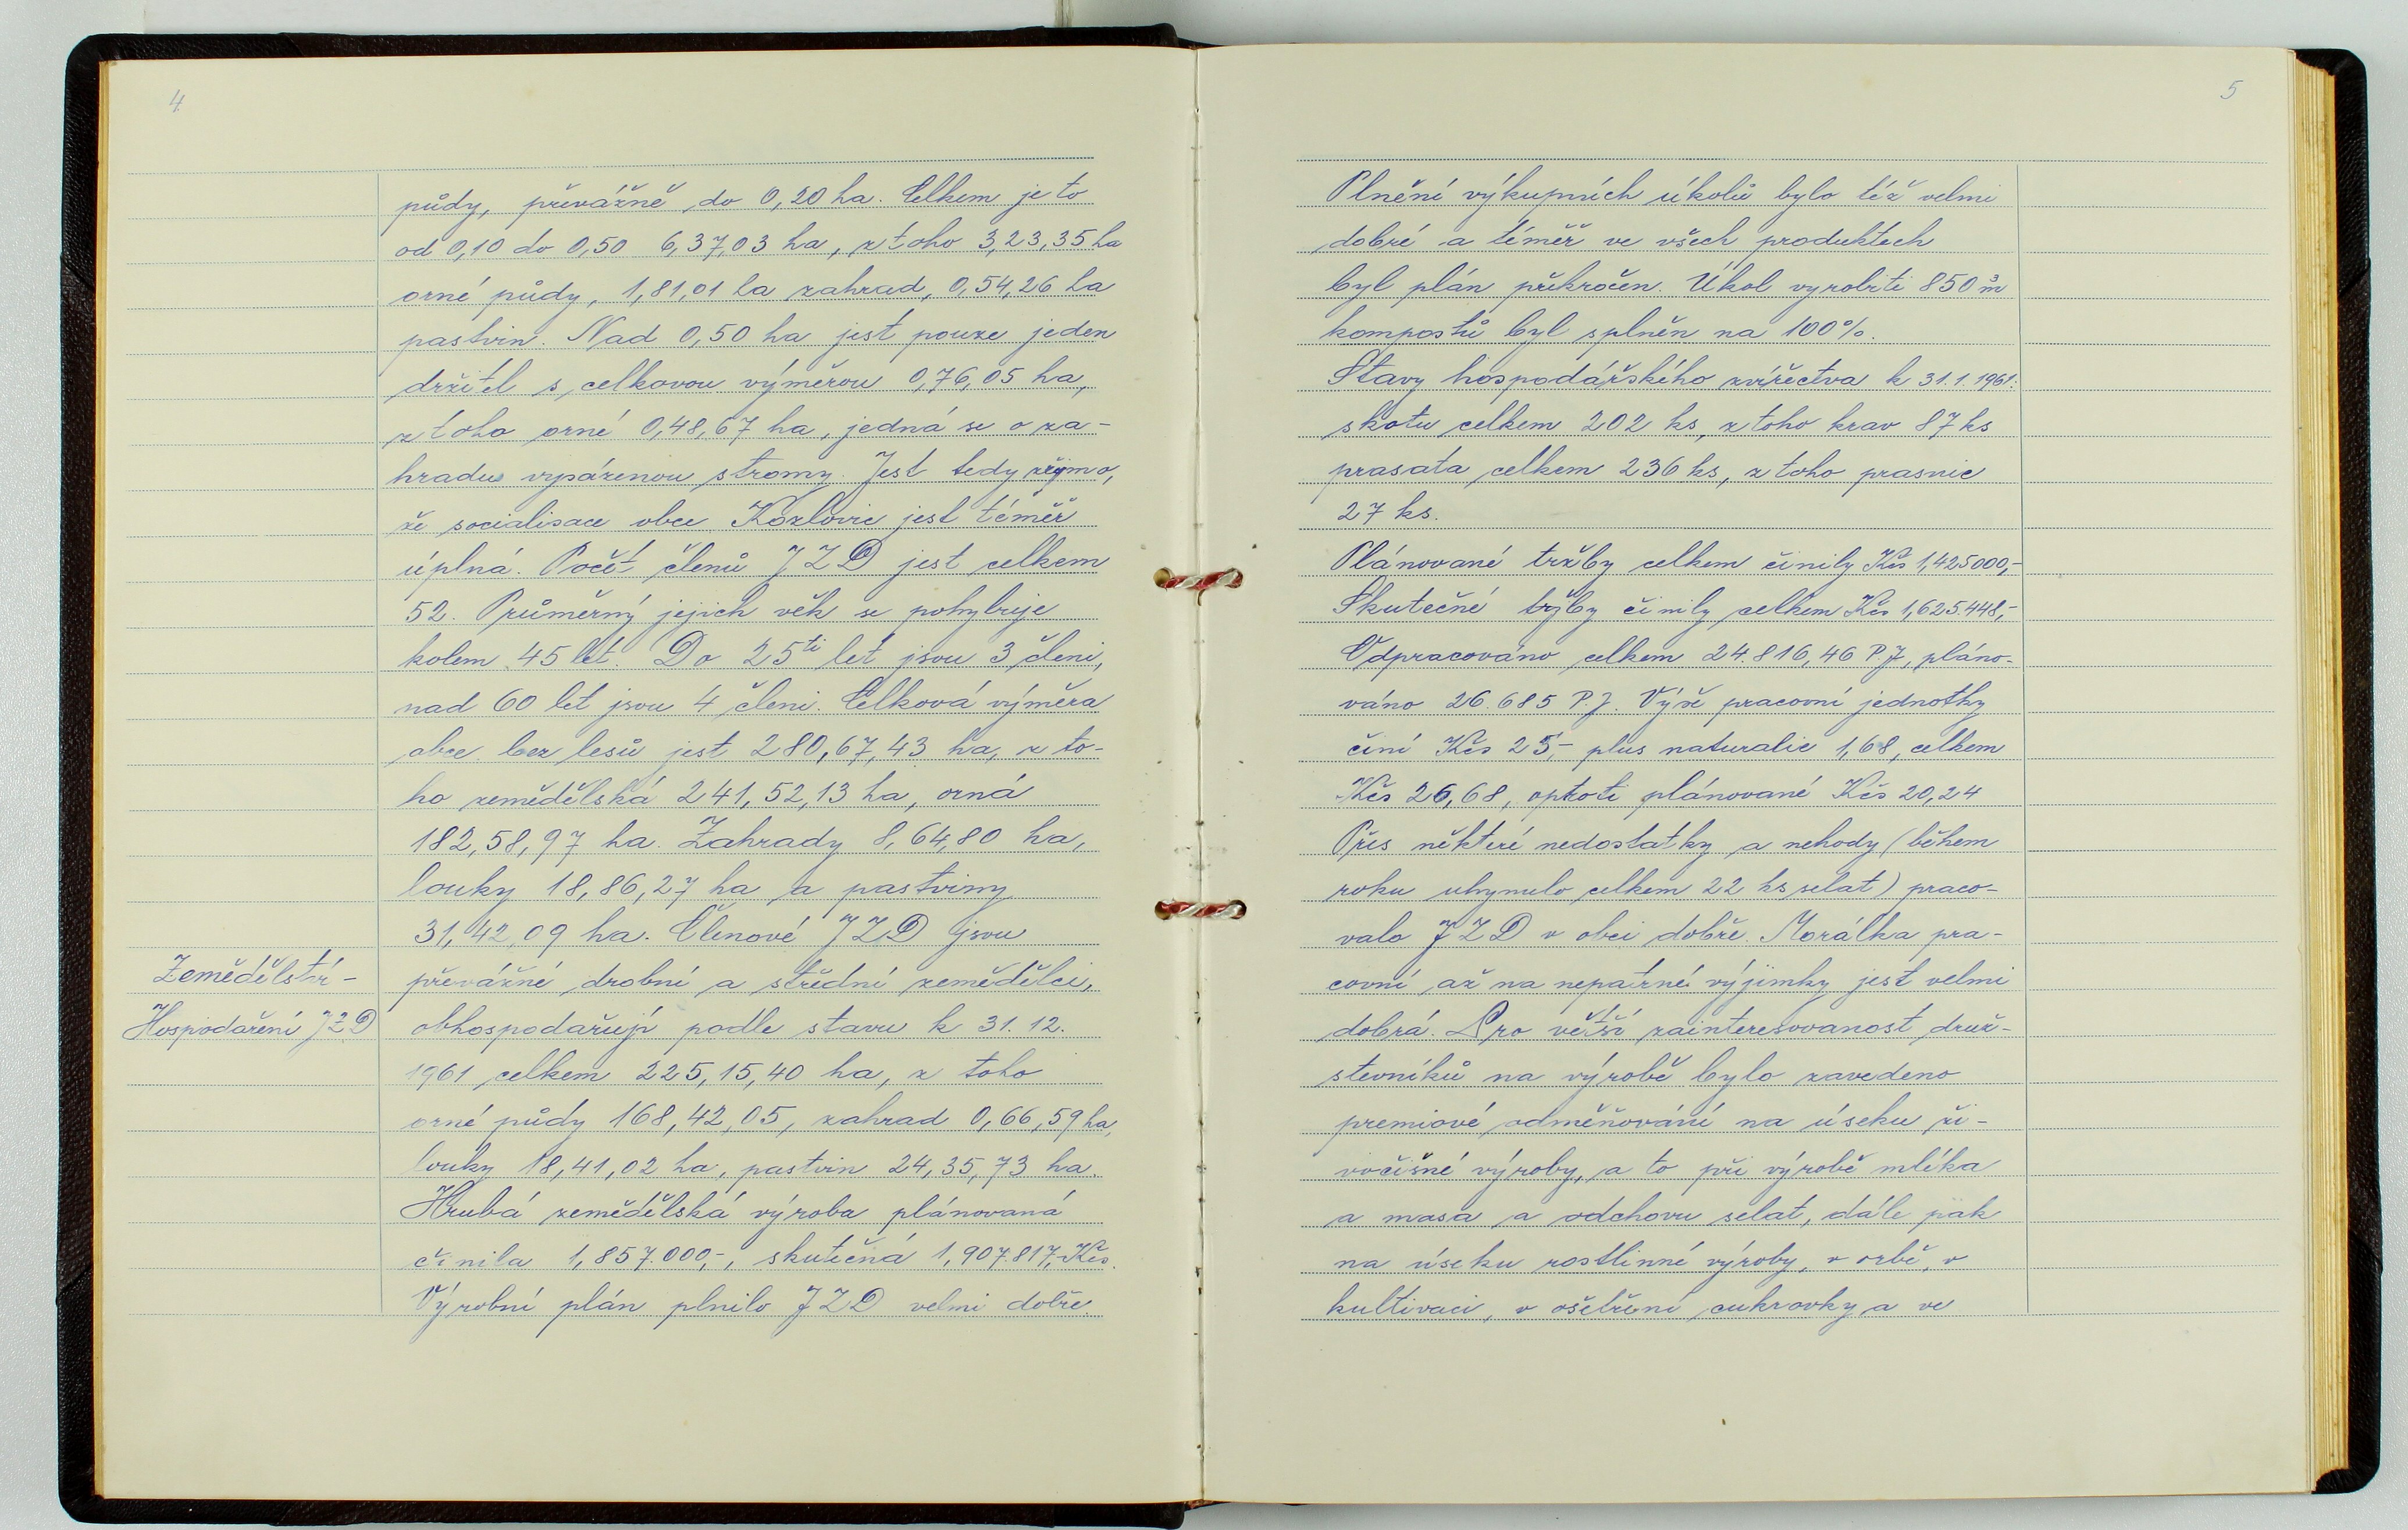 4
půdy, převážně do 0,20 ha. Celkem je to
od 0,10 do 0,50 6,37,03 ha, z toho 3,23,35 ha
orné půdy, 1,81,01 ha zahrad, 0,54,26 ha
pastvin. Nad 0,50 ha jest pouze jeden
držitel s celkovou výměrou 0,76,05 ha,
z toho orné 0,48,67 ha, jedná se o za-
hradu vysázenou stromy. Jest tedy zřejmo,
že socialisace obce Kozlovic jest téměř
úplná. Počet členů JZD jest celkem
52. Průměrný jejich věk se pohybuje
kolem 45 let. Do 25ti let jsou 3 členi,
nad 60 let jsou 4 členi. Celková výměra
obce bez lesů jest 280,67,43 ha, z to-
ho zemědělská 241,52,13 ha, orná
182,58,97 ha. Zahrady 8,64,80 ha,
louky 18,86,27 ha a pastviny
31,42,09 ha. Členové JZD jsou
Zemědělství -
převážně drobní a střední zemědělci,
Hospodaření JZD
obhospodařují podle stavu k 31. 12.
1961 celkem 225,15,40 ha, z toho
orné půdy 168,42,05, zahrad 0,66,59 ha,
louky 18,41,02 ha, pastvin 24,35,73 ha.
Hrubá zemědělská výroba plánovaná
činila 1,857.000,-, skutečná 1,907.817,- Kčs.
Výrobní plán plnilo JZD velmi dobře.
5
Plnění výkupních úkolů bylo též velmi
dobré a téměř ve všech produktech
byl plán překročen. Úkol vyrobiti 850 m3
kompostů byl splněn na 100%.
Stavy hospodářského zvířectva k 31. 1. 1961:
skotu celkem 202 ks, z toho krav 87 ks
prasata celkem 236 ks, z toho prasnic
27 ks.
Plánované tržby celkem činily Kčs 1,425000,-
Skutečné tržby činily celkem Kčs 1,625.448,-
Odpracováno celkem 24.816,46 PJ, pláno-
váno 26.685 P.J. Výše pracovní jednotky
činí Kčs 25,- plus naturalie 1,68, celkem
Kčs 26,68, oproti plánované Kčs 20,24
Přes některé nedostatky a nehody (během
roku uhynulo celkem 22 ks selat) praco-
valo JZD v obci dobře. Morálka pra-
covní až na nepatrné výjimky jest velmi
dobrá. Pro větší zainteresovanost druž-
stevníků na výrobě bylo zavedeno
premiové odměňování na úseku ži-
vočišné výroby, a to při výrobě mléka
a masa a odchovu selat, dále pak
na úseku rostlinné výroby, v orbě, v
kultivaci, v ošetření cukrovky a ve